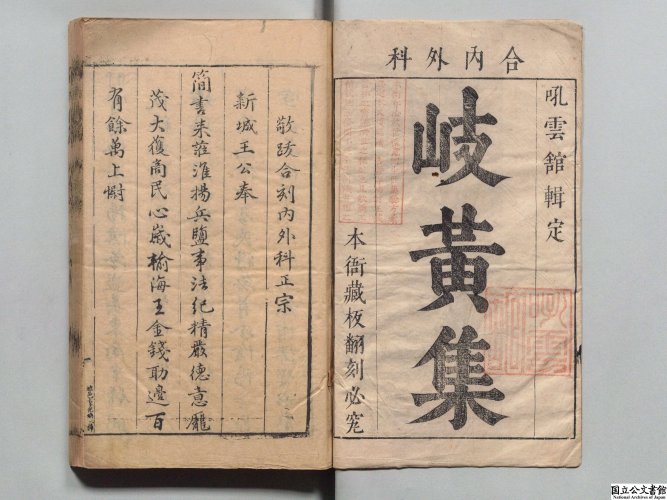 合內外科
吼雲館輯定
岐黃集
本衙藏板翻刻必究
敬跋合刻內外科正宗
新城王公奉
簡書來莅淮揚兵鹽事法紀精嚴德意龐
茂大獲商民心歲榆海王金錢助邊百
有餘萬上尉
国立公文書館
National Archives of Japan